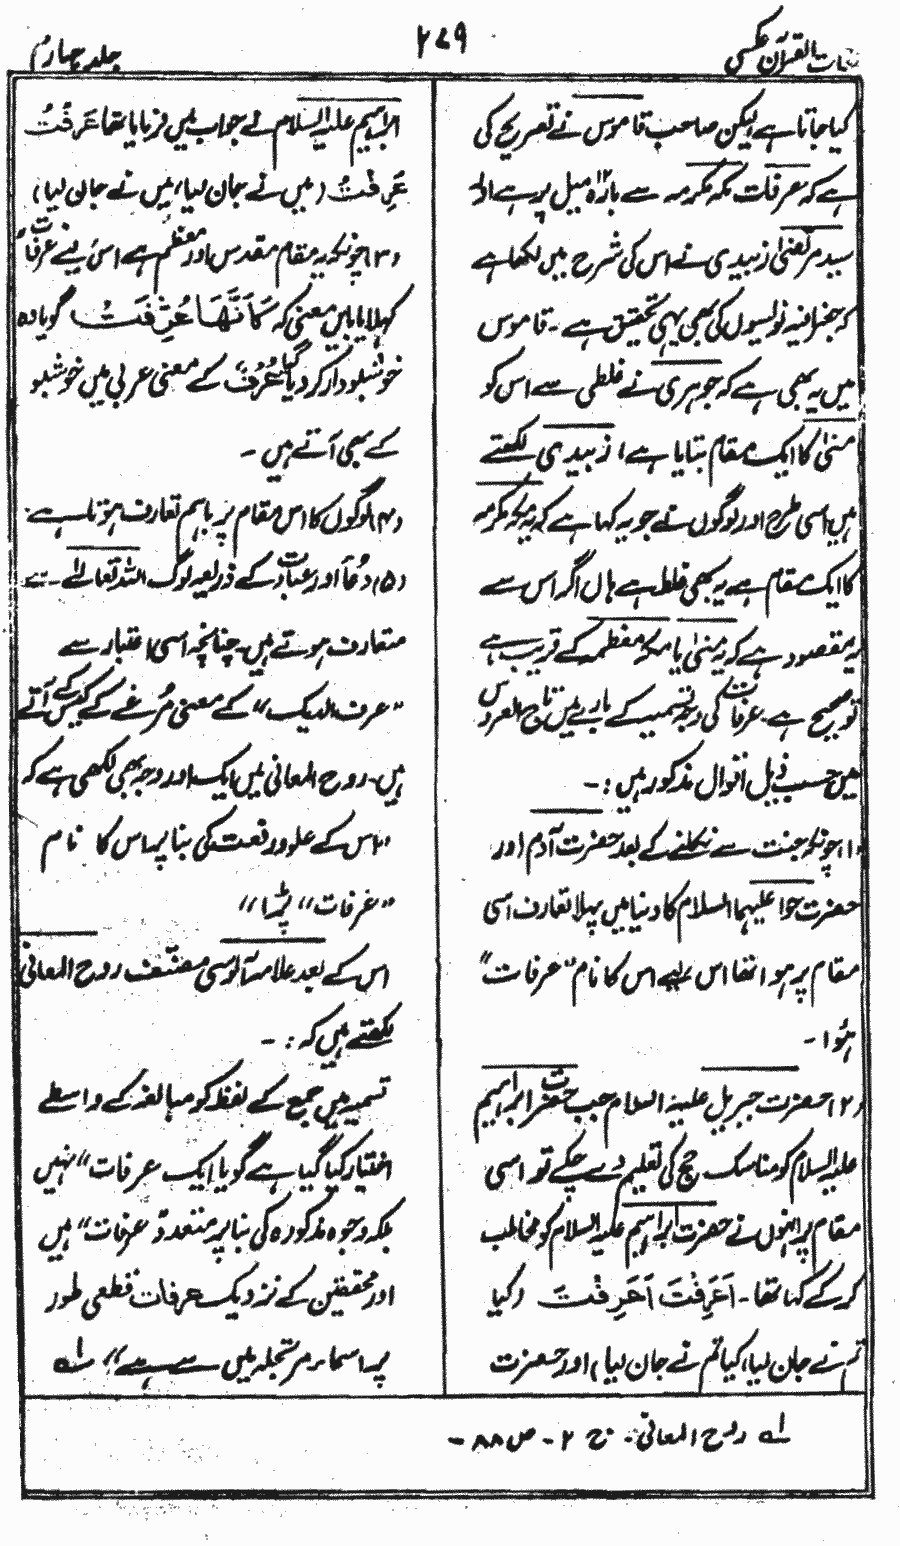 لغات القرآن عکسی
۲۷۹
جلد چہارم
کیا جاتا ہے لیکن صاحب قاموس نے تصریح کی
ہے کہ عرفات مکہ مکرمہ سے بارہ ۱۲ میل پر ہے اور
سید مرتضیٰ زبیدی نے اس کی شرح میں لکھا ہے
کہ جغرافیہ نویسوں کی بھی یہی تحقیق ہے ۔ قاموس
میں یہ بھی ہے کہ جوہری نے غلطی سے اس کو
منیٰ کا ایک مقام بتایا ہے ، زبیدی لکھتے
ہیں اسی طرح اور لوگوں نے جو یہ کہا ہے کہ یہ مکہ مکرمہ
کا ایک مقام ہے یہ بھی غلط ہے ہاں اگر اس سے
یہ مقصود ہے کہ یہ منیٰ یا مکہ معظمہ کے قریب ہے
تو صحیح ہے ۔ عرفات کی وجہ تسمیہ کے بارے میں تاج العروس
میں حسب ذیل اقوال مذکور ہیں :۔
(۱) چونکہ جنت سے نکلنے کے بعد حضرت آدم اور
حضرت حوا علیہما السلام کا دنیا میں پہلا تعارف اسی
مقام پر ہوا تھا اس لیے اس کا نام "عرفات"
ہؤا ۔
(۲) حضرت جبریل علیہ السلام جب حضرت ابراہیم
علیہ السلام کو مناسک حج کی تعلیم دے چکے تو اسی
مقام پر انہوں نے حضرت ابراہیم علیہ السلام کو مخاطب
کر کے کہا تھا ۔ اَعَرَفْتَ اَعَرِفْتَ (کیا
تم نے جان لیا، کیا تم نے جان لیا) اور حضرت
ابراہیم علیہ السلام نے جواب میں فرمایا تھا عَرَفْتُ
عَرِفْتُ (میں نے جان لیا، میں نے جان لیا)
(۳) چونکہ یہ مقام مقدس اور معظم ہے اس لیے عرفات
کہلایا بایں معنی کہ کَاَنَّھَا عُرِّفَتْ گویا وہ
خوشبودار کر دیا گیا عُرْف کے معنی عربی میں خوشبو
کے بھی آتے ہیں ۔
(۴) لوگوں کا اس مقام پر باہم تعارف ہوتا ہے ۔
(۵) دُعا اور عبادت کے ذریعہ لوگ اللہ تعالےٰ سے
متعارف ہوتے ہیں ۔ چنانچہ اسی اعتبار سے
"عرف الدیک" کے معنی مُرغے کے کیس کے آتے
ہیں ۔ روح المعانی میں ایک اور وجہ بھی لکھی ہے کہ
"اس کے علو و رفعت کی بنا پر اس کا نام
"عرفات" پڑا"
اس کے بعد علامہ آلوسی مصنّف روح المعانی
لکھتے ہیں کہ :۔
تسمیہ میں جمع کے لفظ کو مبالغہ کے واسطے
اختیار کیا گیا ہے گویا ایک عرفات "نہیں
بلکہ وجوہ مذکورہ کی بنا پر متعدد عرفات" ہیں
اور محققین کے نزدیک عرفات قطعی طور
پر اسماء مرتجلہ میں سے ہے" لہ
لہ روح المعانی ۔ ج ۲ ۔ ص ۸۸ ۔